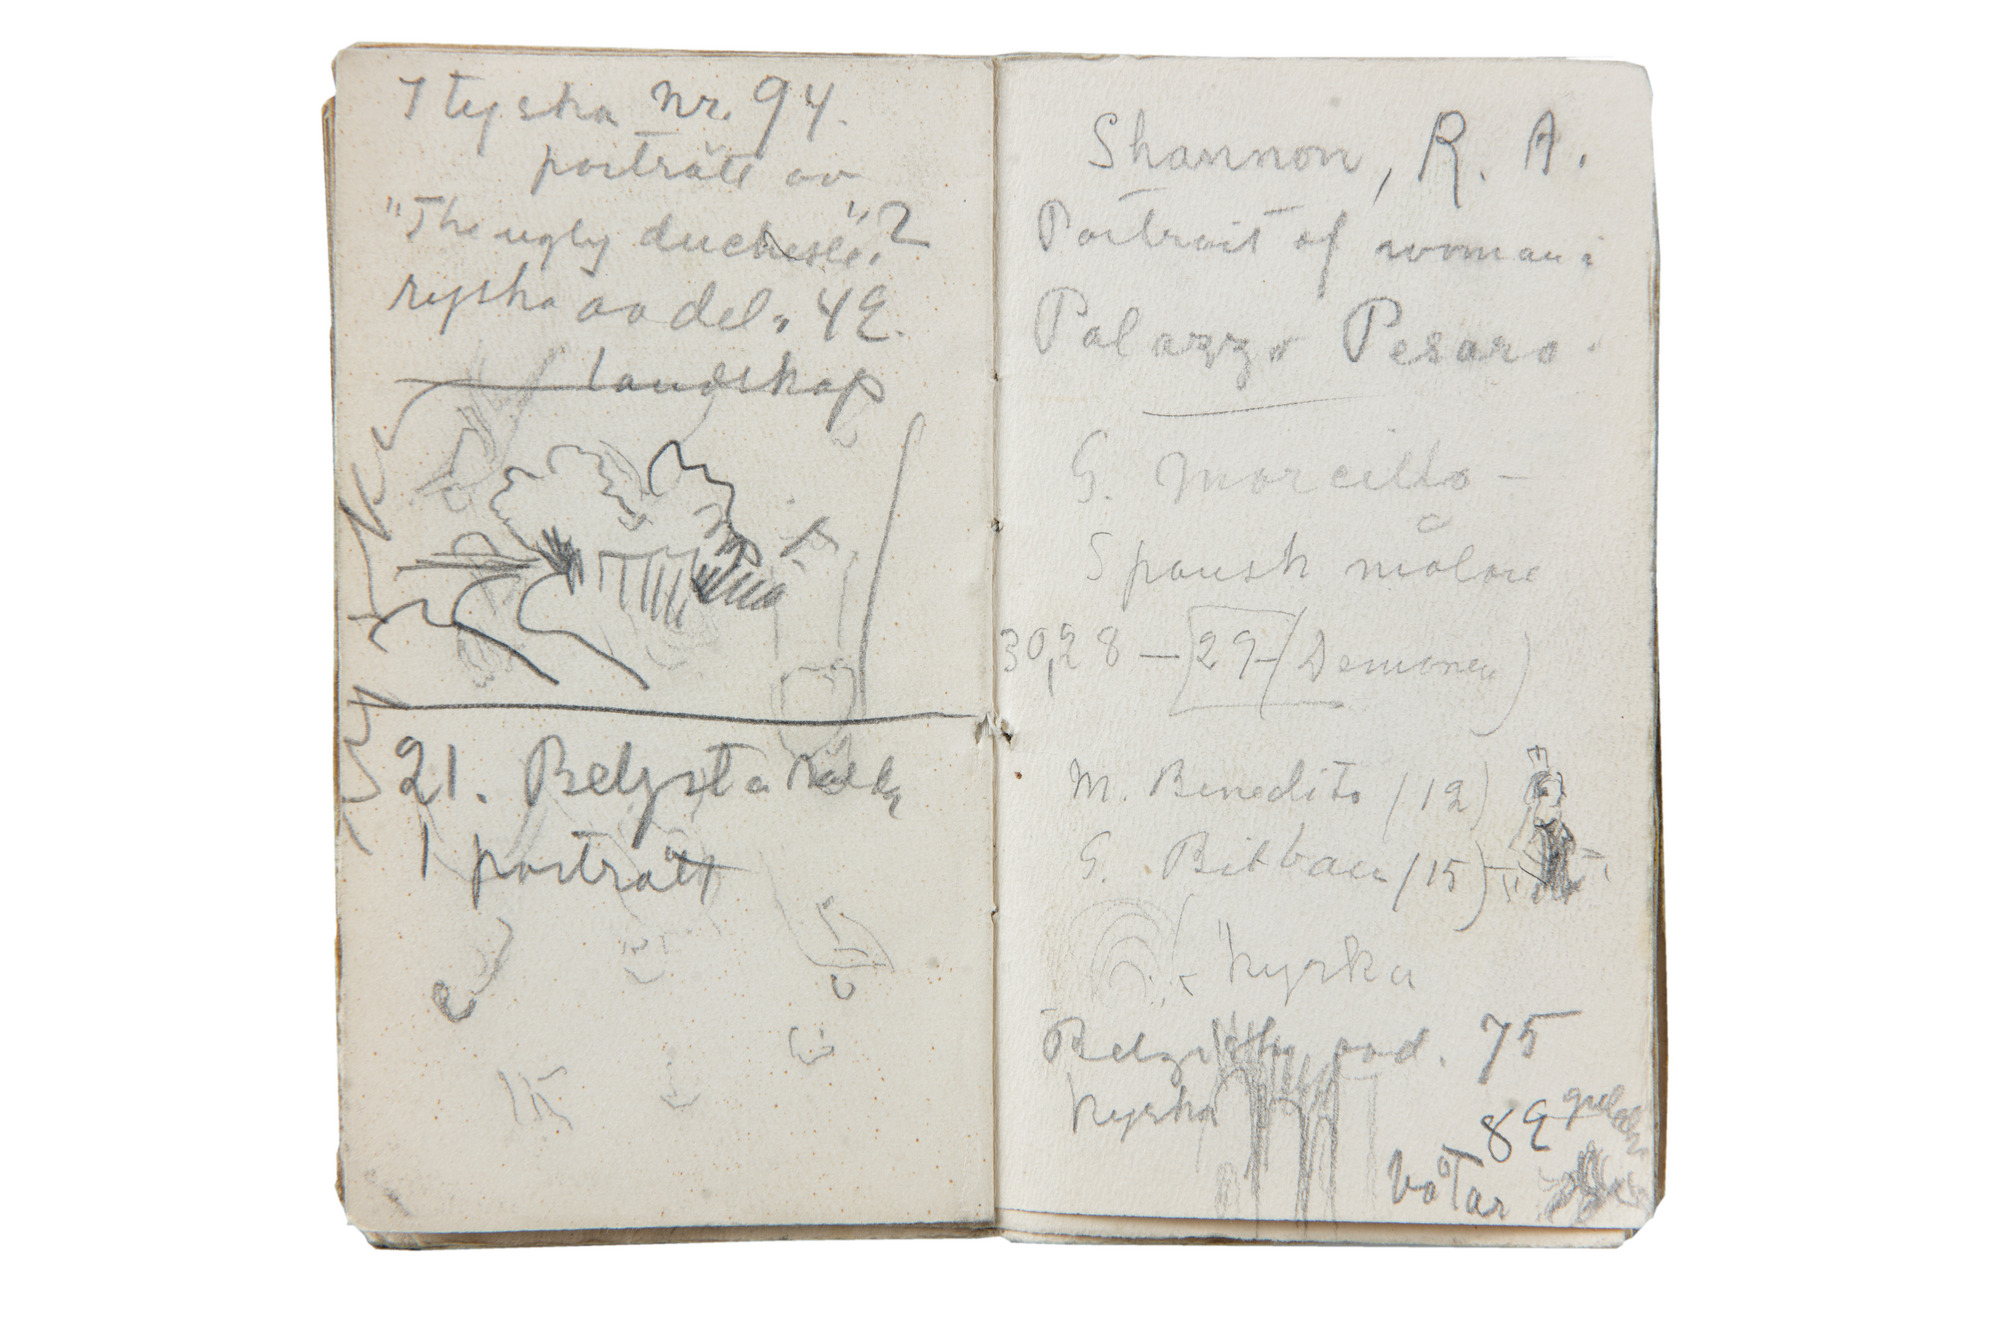 I tyska nr. 94.
porträte av
"The ugly duchess."?
ryska avdel. 42.
landskap
21. Belysta
1 porträtt
Shannon, R. A.
Portrait of woman:
Palazzo Pesaro.
G. Morcillo –
Spansk målare
30,28 – 29 – (Demonen)
M. Benedito (12)
G. Bilbau (15)
Kyrka
Belgiska avd. 75
Kyrka
82
Våtar